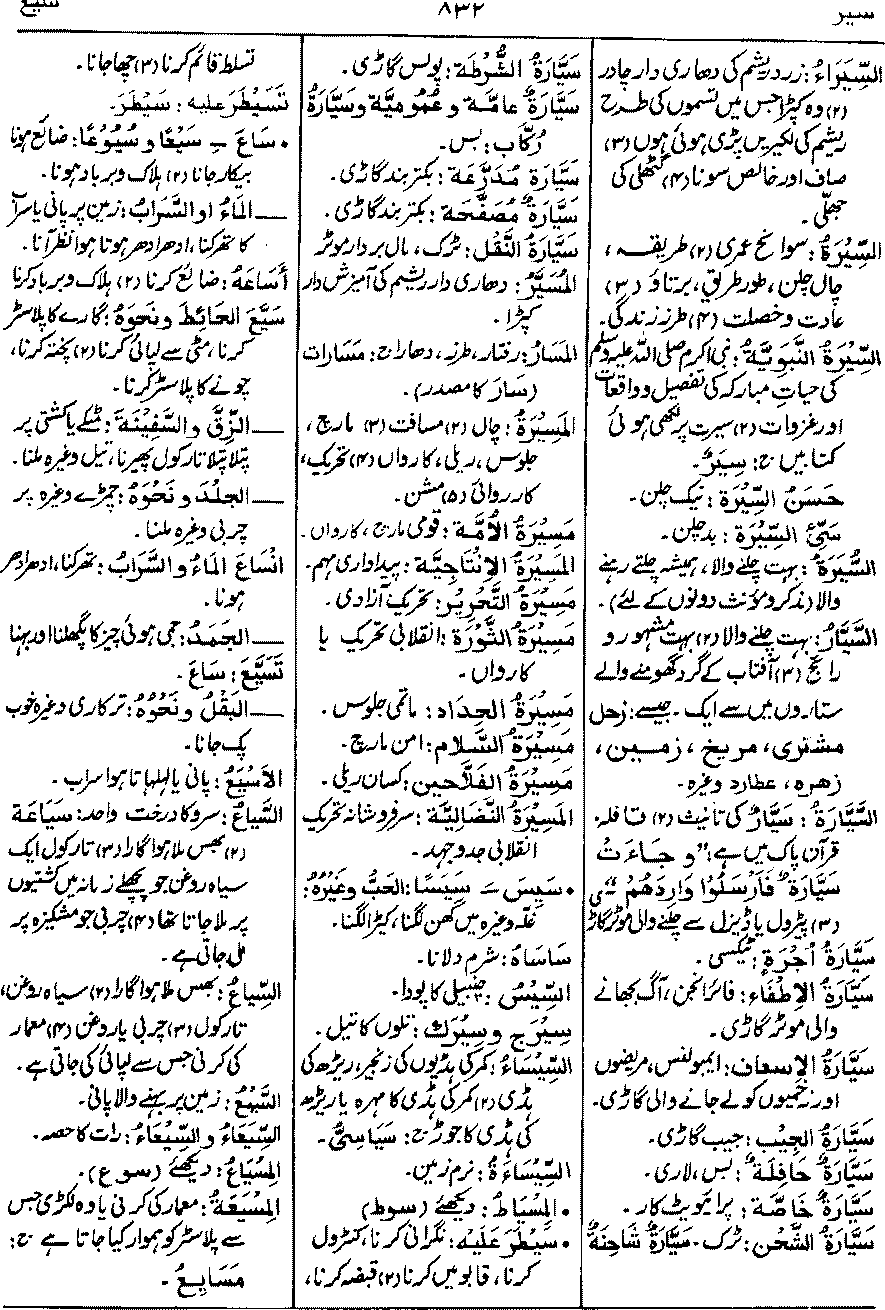 سیر
۸۳۲
سیع
السِّیَرَاءُ: زرد ریشم کی دھاری دار چادر
(۲) وہ کپڑا جس میں تسموں کی طرح
ریشم کی لکیریں پڑی ہوئی ہوں (۳)
صاف اور خالص سونا (۴) گٹھلی کی
جھلّی۔
السِّیْرَةُ: سوانح عمری (۲) طریقہ،
چال چلن، طور طریق، برتاؤ (۳)
عادت و خصلت (۴) طرز زندگی۔
السِّیْرَةُ النَّبَوِیَّةُ: نبی اکرم صلی اللہ علیہ وسلم
کی حیاتِ مبارکہ کی تفصیل و واقعات
اور غزوات (۲) سیرت پر لکھی ہوئی
کتابیں ج: سِیَرٌ۔
حَسَنُ السِّیْرَةِ: نیک چلن۔
سَیِّئُ السِّیْرَةِ: بد چلن۔
السُّیَرَةُ: بہت چلنے والا، ہمیشہ چلتے رہنے
والا (مذکر و مؤنث دونوں کے لئے)۔
السَّیَّارُ: بہت چلنے والا (۲) بہت مشہور و
رائج (۳) آفتاب کے گرد گھومنے والے
ستاروں میں سے ایک۔ جیسے: زحل
مشتری، مریخ، زمین،
زہرہ، عطارد وغیرہ۔
السَّیَّارَةُ: سَیَّارٌ کی تانیث (۲) قافلہ۔
قرآن پاک میں ہے: "وَ جَاءَتْ
سَیَّارَةٌ فَأَرْسَلُوا وَارِدَهُمْ"
(۳) پیٹرول یا ڈیزل سے چلنے والی موٹر گاڑی
سَیَّارَةُ أُجْرَةٍ: ٹیکسی۔
سَیَّارَةُ الْإِطْفَاءِ: فائر انجن، آگ بجھانے
والی موٹر گاڑی۔
سَیَّارَةُ الْإِسْعَافِ: ایمبولنس، مریضوں
اور زخمیوں کو لے جانے والی گاڑی۔
سَیَّارَةُ الْجِیْبِ: جیپ گاڑی۔
سَیَّارَةٌ حَافِلَةٌ: بس، لاری۔
سَیَّارَةٌ خَاصَّةٌ: پرائیویٹ کار۔
سَیَّارَةُ الشَّحْنِ: ٹرک۔ سَیَّارَةٌ شَاحِنَةٌ
سَیَّارَةُ الشُّرْطَةِ: پولس گاڑی۔
سَیَّارَةٌ عَامَّةٌ و عُمُوْمِیَّةٌ و سَیَّارَةُ
رُکَّابٍ: بس۔
سَیَّارَةٌ مُدَرَّعَةٌ: بکتر بند گاڑی۔
سَیَّارَةٌ مُصَفَّحَةٌ: بکتر بند گاڑی۔
سَیَّارَةُ النَّقْلِ: ٹرک، مال بردار موٹر
المُسَیَّرُ: دھاری دار ریشم کی آمیزش دار
کپڑا۔
المَسَارُ: رفتار، طرز، دھارا ج: مَسَارَات
(سَارَ کا مصدر)۔
المَسِیْرَةُ: چال (۲) مسافت (۳) مارچ،
جلوس، ریلی، کارواں (۴) تحریک،
کارروائی (۵) مشن۔
مَسِیْرَةُ الْأُمَّةِ: قومی مارچ، کارواں۔
المَسِیْرَةُ الْإِنْتَاجِیَّةُ: پیداواری مہم۔
مَسِیْرَةُ التَّحْرِیْرِ: تحریک آزادی۔
مَسِیْرَةُ الثَّوْرَةِ: انقلابی تحریک یا
کارواں۔
مَسِیْرَةُ الْحِدَادِ: ماتمی جلوس۔
مَسِیْرَةُ السَّلَامِ: امن مارچ۔
مَسِیْرَةُ الْفَلَّاحِیْنَ: کسان ریلی۔
المَسِیْرَةُ النِّضَالِیَّةُ: سرفروشانہ تحریک
انقلابی جدوجہد۔
• سَیِسَ ــَ سَیَسًا: الحَبُّ وغَیْرُهُ:
غلّہ وغیرہ میں گھن لگنا، کیڑا لگنا۔
سَاسَاهُ: شرم دلانا۔
السِّیْسُ: چنبیلی کا پودا۔
سِیْرَج و سِیْرَك: تلوں کا تیل۔
السِّیْسَاءُ: کمر کی ہڈیوں کی زنجیر، ریڑھ کی
ہڈی (۲) کمر کی ہڈی کا مہرہ یا ریڑھ
کی ہڈی کا جوڑ ج: سَیَاسِیُّ۔
السِّیْسَاءَةُ: نرم زمین۔
• المِسْیَاطُ: دیکھئے (سوط)
• سَیْطَرَ عَلَیْهِ: نگرانی کرنا، کنٹرول
کرنا، قابو میں کرنا (۲) قبضہ کرنا،
تسلط قائم کرنا (۳) چھا جانا۔
تَسَیْطَرَ علیه: سَیْطَرَ۔
• سَاعَ ــِ سَیْعًا و سُیُوْعًا: ضائع ہونا
بیکار جانا (۲) ہلاک و برباد ہونا۔
ــــ الْمَاءُ او السَّرَابُ: زمین پر پانی یا سراب
کا تھرکنا، ادھر ادھر ہوتا ہوا نظر آنا۔
أَسَاعَهُ: ضائع کرنا (۲) ہلاک و برباد کرنا
سَیَّعَ الحَائِطَ و نَحْوَهُ: گارے کا پلاسٹر
کرنا، مٹی سے لپائی کرنا (۲) پختہ کرنا،
چونے کا پلاسٹر کرنا۔
ــــ الزِّقَّ و السَّفِیْنَةَ: مٹکے یا کشتی پر
پتلا پتلا تارکول پھیرنا، تیل وغیرہ ملنا۔
ــــ الجِلْدَ و نَحْوَهُ: چمڑے وغیرہ پر
چربی وغیرہ ملنا۔
انْسَاعَ المَاءُ و السَّرَابُ: تھرکنا، ادھر ادھر
ہونا۔
ــــ الجَمَدُ: جمی ہوئی چیز کا پگھلنا اور بہنا
تَسَیَّعَ: سَاعَ۔
ــــ البَقْلُ و نَحْوُهُ: ترکاری وغیرہ خوب
پک جانا۔
الأَسْیَعُ: پانی یا لہلہاتا ہوا سراب۔
السَّیَاعُ: سرو کا درخت واحد: سَیَاعَة
(۲) بھس ملا ہوا گارا (۳) تارکول ایک
سیاہ روغن جو پچھلے زمانہ میں کشتیوں
پر ملا جاتا تھا (۴) چربی جو مشکیزہ پر
ملی جاتی ہے۔
السِّیَاعُ: بھس ملا ہوا گارا (۲) سیاہ روغن،
تارکول (۳) چربی یا روغن (۴) معمار
کی کرنی جس سے لپائی کی جاتی ہے۔
السَّیْعُ: زمین پر بہنے والا پانی۔
السِّیَعَاءُ و السِّیْعَاءُ: رات کا حصہ۔
المِسْیَاعُ: دیکھئے (سوع)۔
المِسْیَعَةُ: معمار کی کرنی یا وہ لکڑی جس
سے پلاسٹر کو ہموار کیا جاتا ہے ج:
مَسَایِعُ۔